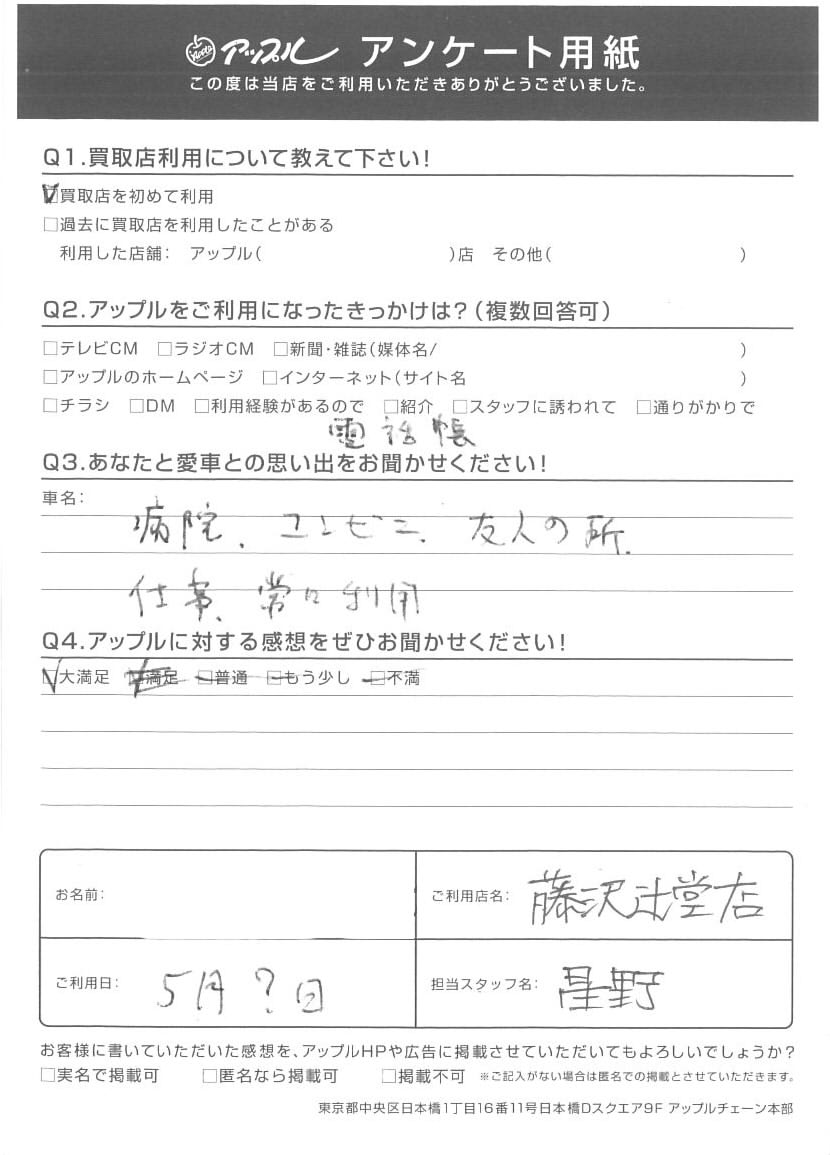 Apple アップル アンケート用紙
この度は当店をご利用いただきありがとうございました。
Q1.買取店利用について教えて下さい!
☑買取店を初めて利用
□過去に買取店を利用したことがある
利用した店舗: アップル( )店 その他( )
Q2.アップルをご利用になったきっかけは?(複数回答可)
□テレビCM □ラジオCM □新聞・雑誌(媒体名/ )
□アップルのホームページ □インターネット(サイト名 )
□チラシ □DM □利用経験があるので □紹介 □スタッフに誘われて □通りがかりで
電話帳
Q3.あなたと愛車との思い出をお聞かせください!
車名:
病院、コンビニ、友人の所、
仕事、常日利用
Q4.アップルに対する感想をぜひお聞かせください!
☑大満足 □満足 □普通 □もう少し □不満
お名前:
ご利用店名: 藤沢辻堂店
ご利用日: 5月?日
担当スタッフ名: 星野
お客様に書いていただいた感想を、アップルHPや広告に掲載させていただいてもよろしいでしょうか?
□実名で掲載可 □匿名なら掲載可 □掲載不可 ※ご記入がない場合は匿名での掲載とさせていただきます。
東京都中央区日本橋1丁目16番11号日本橋Dスクエア9F アップルチェーン本部